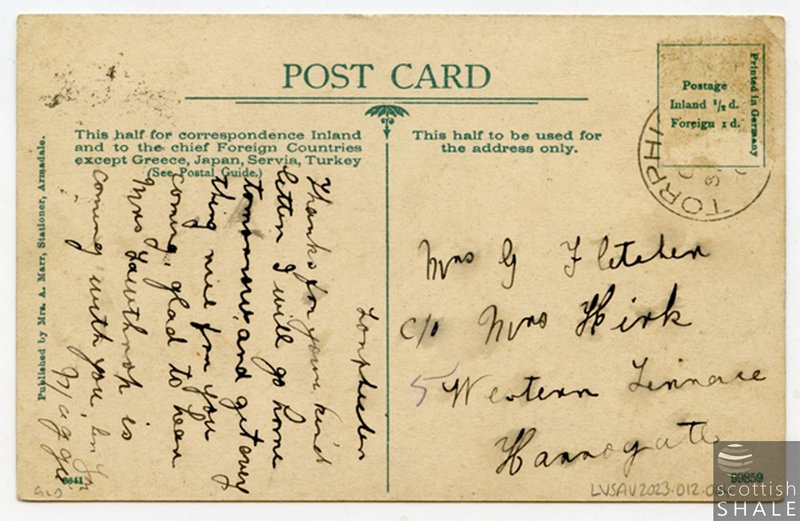 POST CARD
Postage
Inland ½ d.
Foreign 1 d.
Printed in Germany
TORPHI
This half for correspondence Inland
and to the chief Foreign Countries
except Greece, Japan, Servia, Turkey
(See Postal Guide.)
This half to be used for
the address only.
Published by Mrs. A. Marr, Stationer, Armadale.
Torphichen
Thanks for your kind
letter I will go home
tomorrow and get every
thing nice for you
coming, glad to hear
Mrs Lawthrop is
coming with you,
Maggie
Mrs G Fletcher
c/o Mrs Hirk
5 Western Terrace
Harrogate
99859
LVSAV2023.012.0
scottish
SHALE